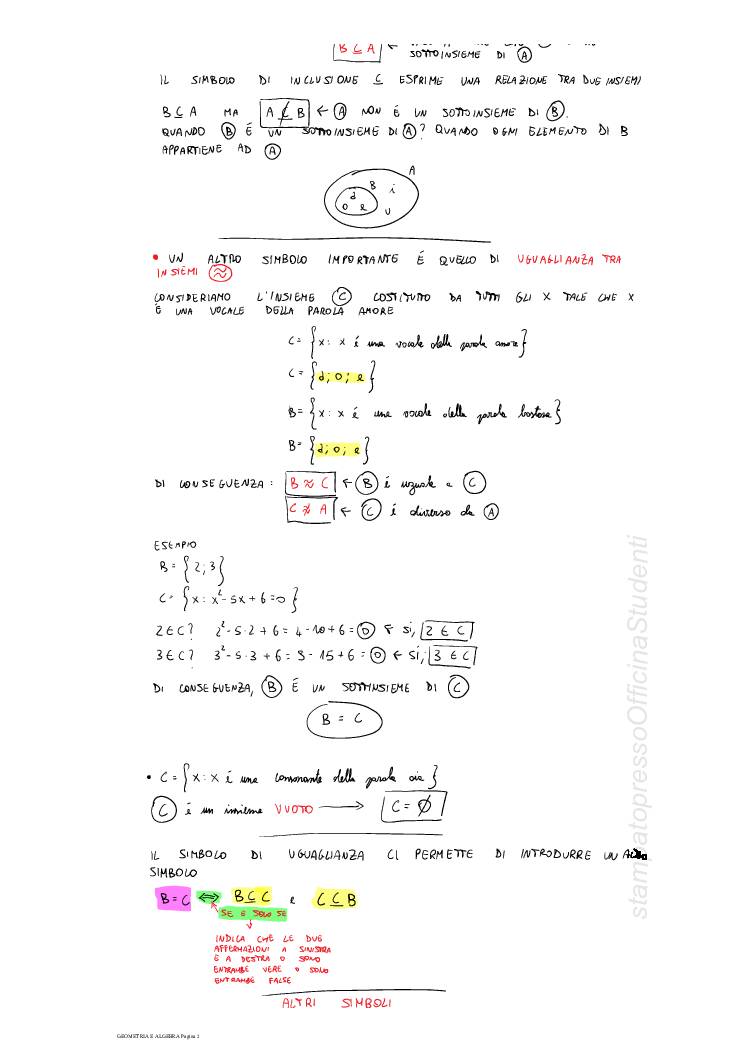 B ⊆ A ←
SOTTOINSIEME DI A
IL SIMBOLO DI INCLUSIONE ⊆ ESPRIME UNA RELAZIONE TRA DUE INSIEMI
B ⊆ A MA A ⊈ B ← A NON É UN SOTTOINSIEME DI B.
QUANDO B É UN SOTTOINSIEME DI A? QUANDO OGNI ELEMENTO DI B
APPARTIENE AD A
A
B i
a
o e u
• UN ALTRO SIMBOLO IMPORTANTE É QUELLO DI UGUAGLIANZA TRA
INSIEMI ≈
CONSIDERIAMO L'INSIEME C COSTITUITO DA TUTTI GLI X TALE CHE X
É UNA VOCALE DELLA PAROLA AMORE
C = {x: x é una vocale della parola amore}
C = {a; o; e}
B = {x: x é una vocale della parola
B = {a; o; e}
DI CONSEGUENZA: B ≈ C ← B é uguale a C
C ≉ A ← C é diverso da A
ESEMPIO
B = {2; 3}
C = {x: x² - 5x + 6 = 0}
2 ∈ C? 2² - 5·2 + 6 = 4 - 10 + 6 = 0 ← SI, 2 ∈ C
3 ∈ C? 3² - 5·3 + 6 = 9 - 15 + 6 = 0 ← SI, 3 ∈ C
DI CONSEGUENZA, B É UN SOTTOINSIEME DI C
B = C
• C = {x: x é una consonante della parola
C é un insieme VUOTO → C = ∅
IL SIMBOLO DI UGUAGLIANZA CI PERMETTE DI INTRODURRE UN ALTRO
SIMBOLO
B = C ⟺ B ⊆ C e C ⊆ B
SE E SOLO SE
INDICA CHE LE DUE
AFFERMAZIONI A SINISTRA
E A DESTRA O SONO
ENTRAMBE VERE O SONO
ENTRAMBE FALSE
ALTRI SIMBOLI
GEOMETRIA E ALGEBRA Pagina 2
stampatopressoOfficinaStudenti